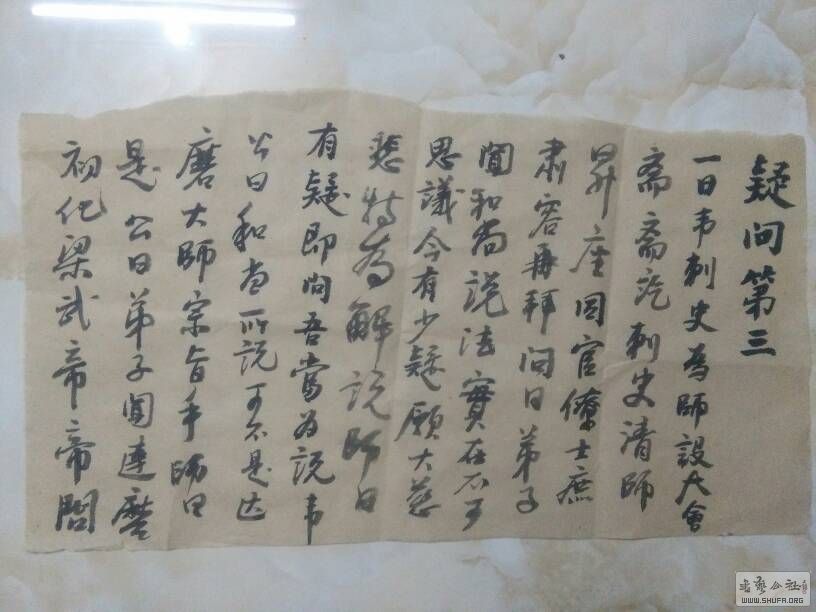 疑问第三
一日韦刺史為師設大會
斋斋讫刺史请師
昇座同官僚士庶
肃容再拜问曰弟子
闻和尚说法實在不可
思議今有少疑願大慈
悲特為解说師曰
有疑即问吾當為説韦
公曰和尚所説可不是达
磨大師宗旨乎師曰
是公曰弟子闻達磨
初化梁武帝帝問
書藝公社
WWW.SHUFA.ORG